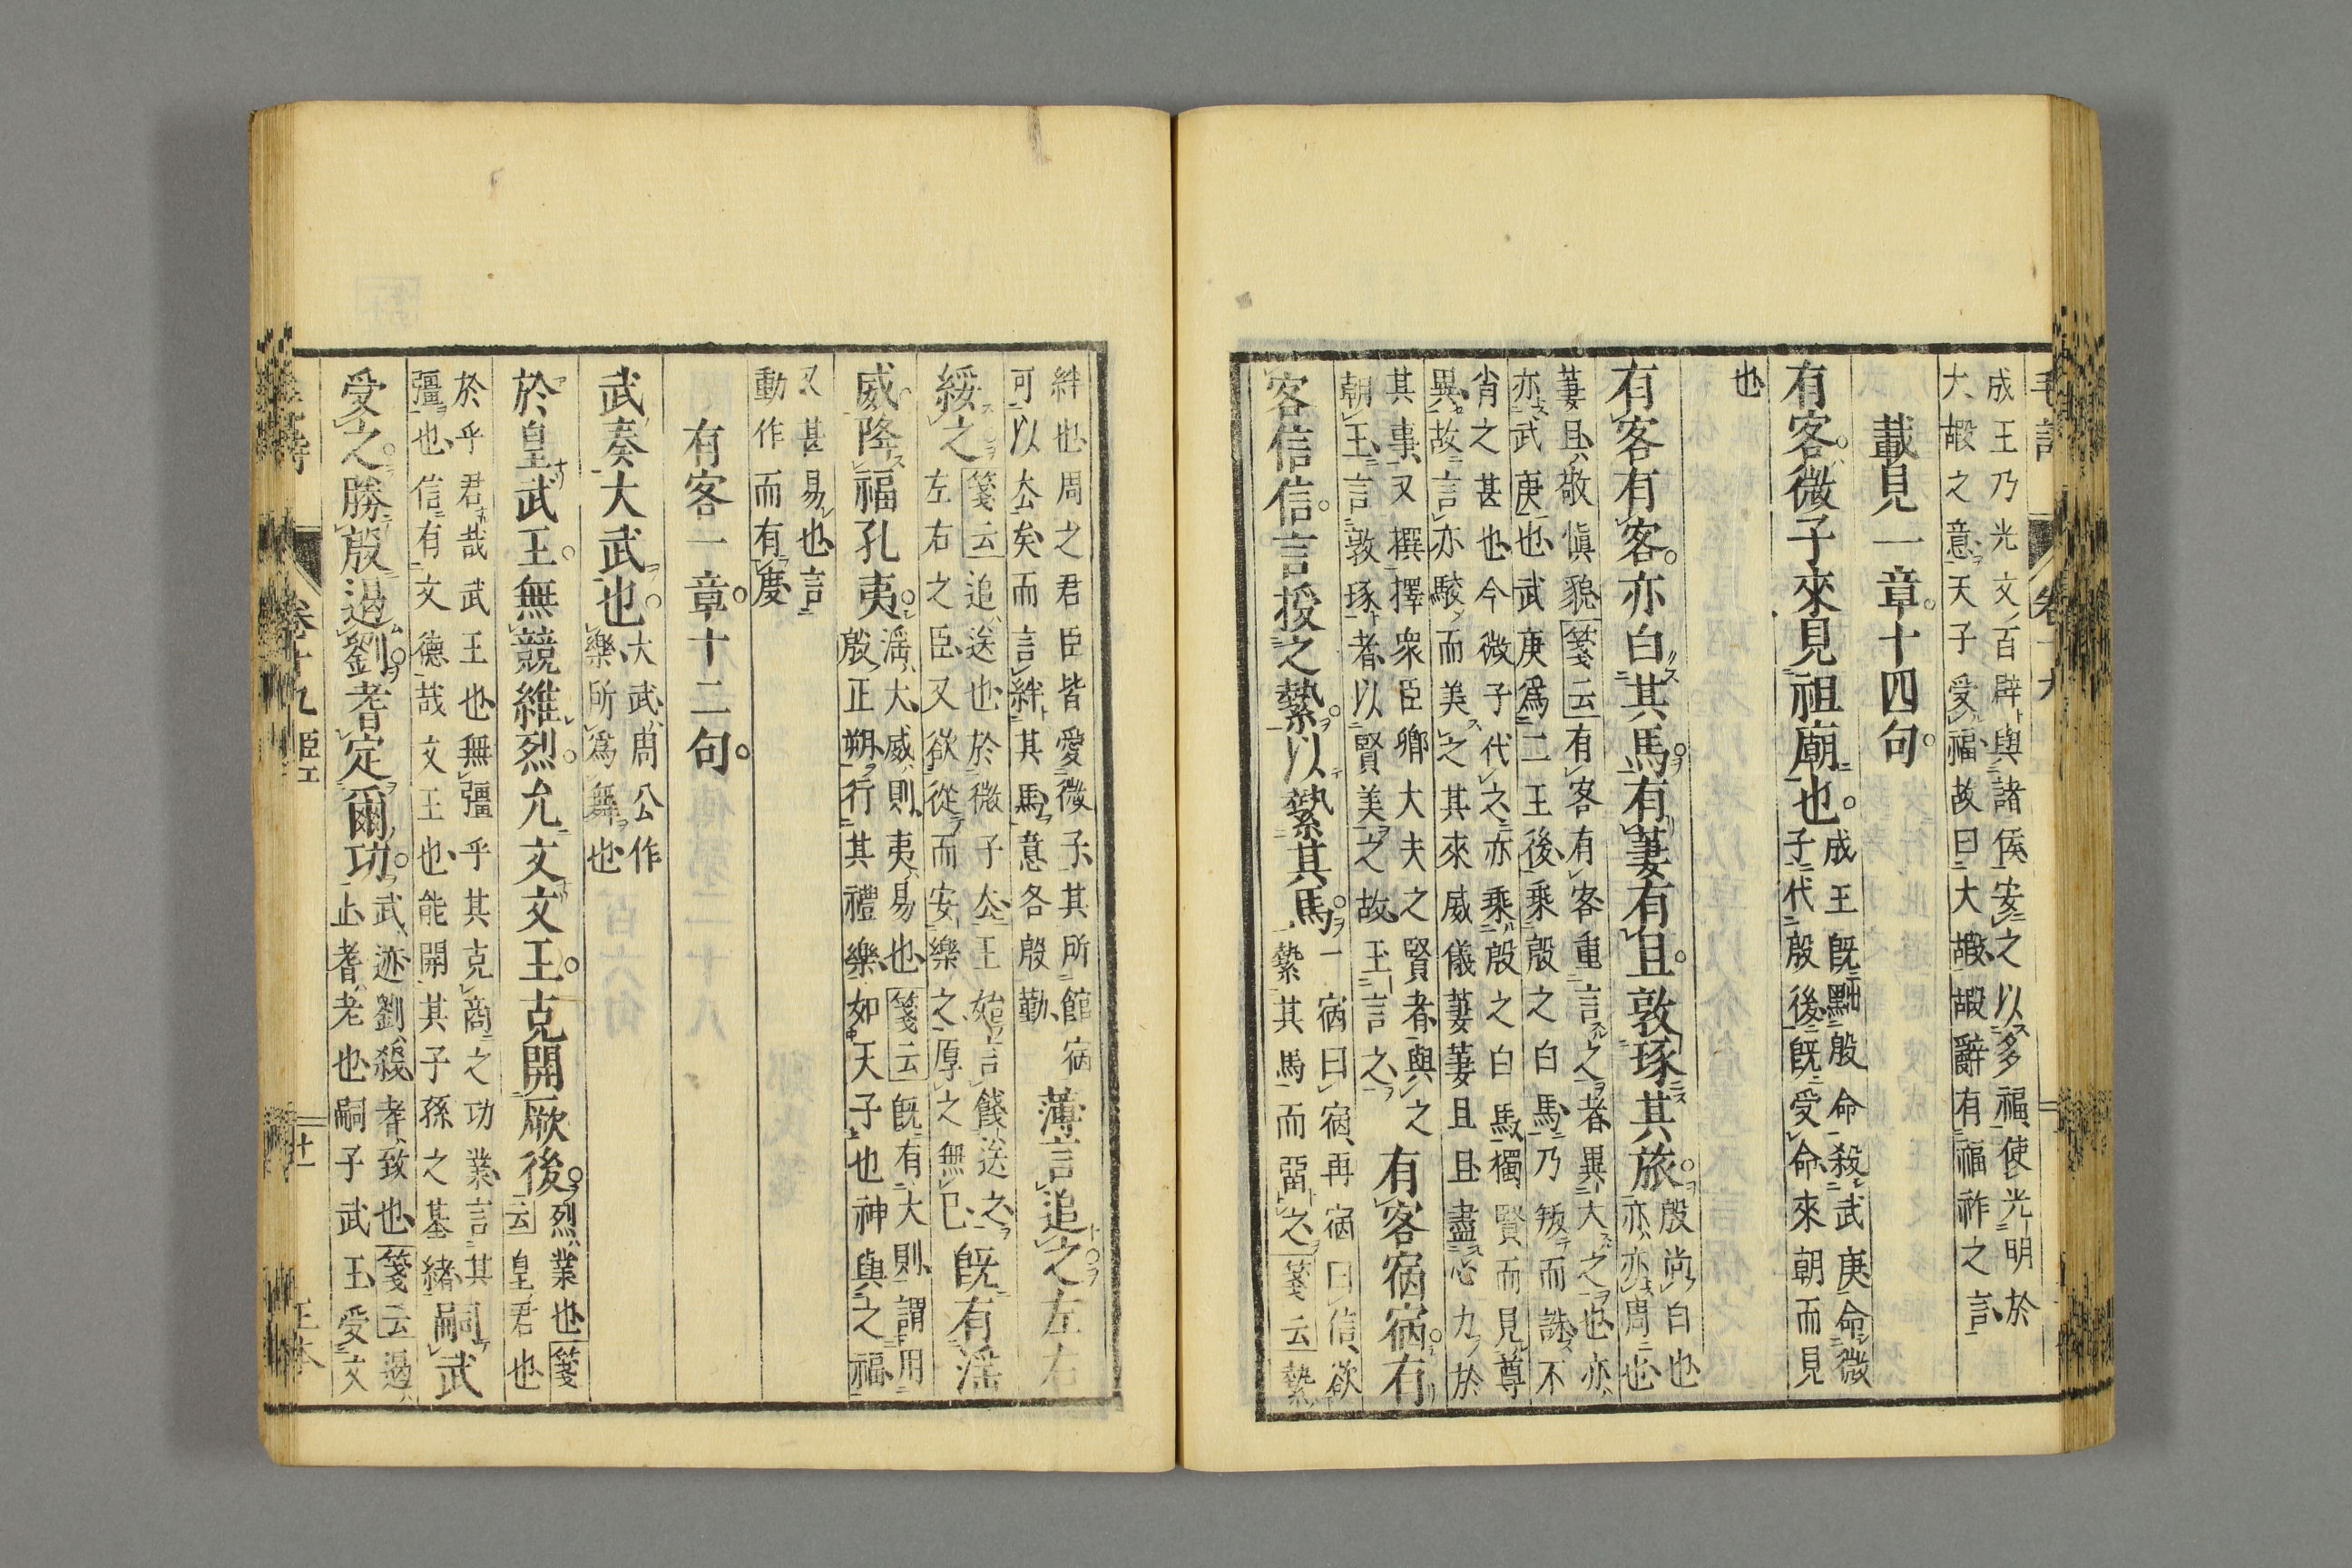 毛詩 卷十九
成王乃光文百辟與諸侯安之以多福使光明於
大嘏之意天子受福故曰大嘏嘏辭有福祚之言
載見一章十四句
有客微子來見祖廟也
成王既黜殷命殺武庚命微
子代殷後既受命來朝而見
也
有客有客亦白其馬有萋有且敦琢其旅
殷尚白也
亦亦周也
萋且敬慎貌箋云有客有客重言之者異大之也亦
亦武庚也武庚爲二王後乘殷之白馬乃叛而誅不
肖之甚也今微子代之亦乘殷之白馬獨賢而見尊
異故言亦駮而美之其來威儀萋萋且且盡心力於
其事又撰擇衆臣卿大夫之賢者與之
朝王言敦琢者以賢美之故王言之
有客宿宿有
客信信言授之縶以縶其馬
一宿曰宿再宿曰信欲
縶其馬而畱之箋云縶
絆也周之君臣皆愛微子其所館宿
可以去矣而言絆其馬意各殷勤
薄言追之左右
綏之
箋云追送也於微子去王始言餞送之
左右之臣又欲從而安樂之厚之無已
既有淫
威降福孔夷
淫大威則夷易也箋云既有大則謂用
殷正朔行其禮樂如天子也神與之福
又甚易也言
動作而有慶
有客一章十二句
武奏大武也
大武周公作
樂所爲舞也
於皇武王無競維烈允文文王克開厥後
烈業也箋
云皇君也
於乎君哉武王也無彊乎其克商之功業言其
彊也信有文德哉文王也能開其子孫之基緒
嗣武
受之勝殷遏劉耆定爾功
武迹劉殺耆致也箋云遏
止耆老也嗣子武王受文
卷十九 臣工 十一